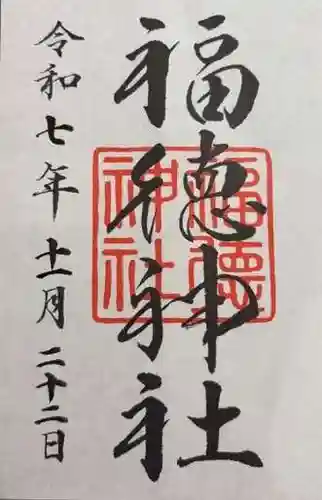 福徳神社
福德
神社
令和七年十一月二十二日